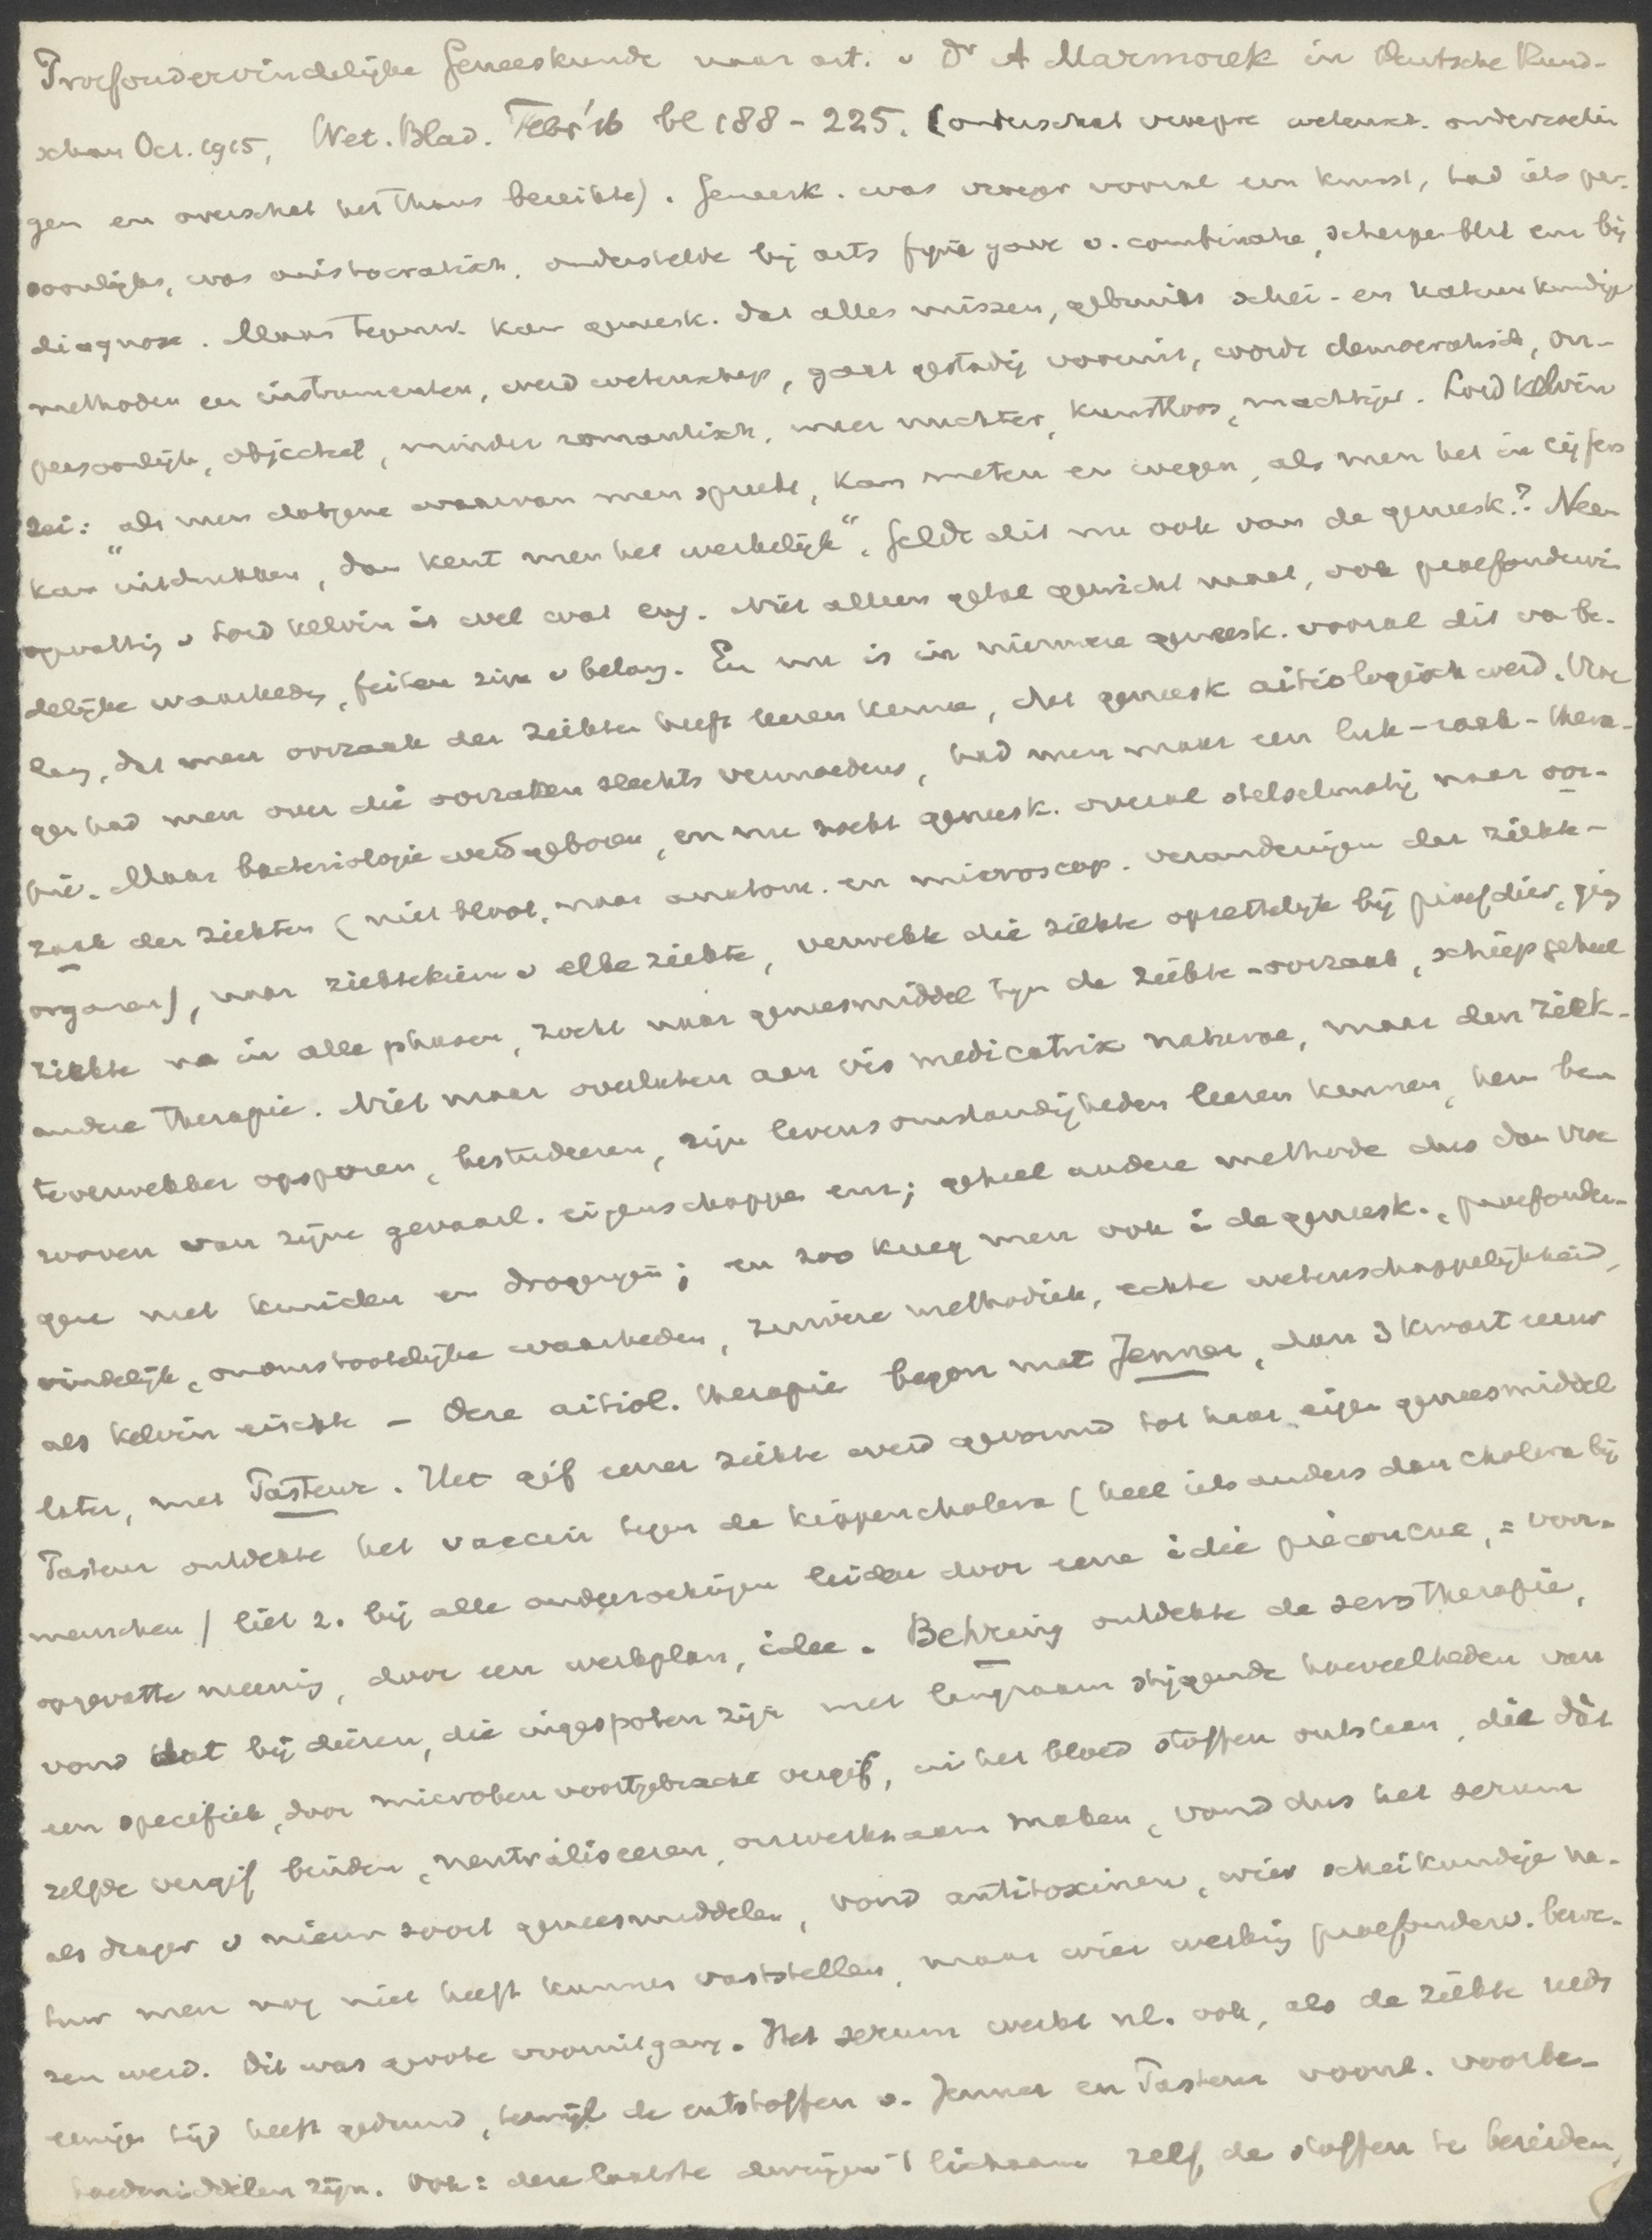 Proefondervindelijke Geneeskunde naar art. v Dr A Marmorek in Deutsche Rund-
schau Oct. 1915, Wet. Blad. Febr '16 bl 188-225. (onderschat vroegre wetensch. onderzoekin
gen en overschat het thans bereikte). Geneesk. was vroeger vooral een kunst, had iets per-
soonlijks, was aristocratisch, onderstelde bij arts fijne gave v. combinatie, scherpen blik enz bij
diagnose. Maar tegenw. kan geneesk. dat alles missen, gebruikt schei- en natuurkundige
methoden en instrumenten, werd wetenschap, gaat gestadig vooruit, wordt democratisch, on-
persoonlijk, objectief, minder romantisch, meer nuchter, kunstloos, machtiger. Lord Kelvin
zei: „als men datgene waarvan men spreekt, kan meten en wegen, als men het in cijfers
kan uitdrukken, dan kent men het werkelijk“. Geldt dit nu ook van de geneesk.? Neen
opvatting v Lord Kelvin is wel wat eng. Niet alleen getal gewicht maat, ook proefondervin
delijke waarheden, feiten zijn v belang. En nu is in nieuwere geneesk. vooral dit va be-
lang, dat men oorzaak der ziekten heeft leeren kennen, dat geneesk aitiologisch werd. Vroe
ger had men over die oorzaken slechts vermoedens, had men maar een luk-raak-thera-
pie. Maar bacteriologie werd geboren, en nu zocht geneesk. overal stelselmatig naar oor-
zaak der ziekten (niet bloot, naar anatom. en microscop. veranderingen der ziekte-
organen), naar ziektekiem v elke ziekte, verwekte die ziekte opzettelijk bij proefdier, ging
ziekte na in alle phasen, zocht naar geneesmiddel tegen de ziekte-oorzaak, schiep geheel
andere therapie. Niet maar overlaten aan vis medicatrix naturae, maar den ziek-
teverwekker opsporen, bestudeeren, zijn levensomstandigheden leeren kennen, hem ber
rooven van zijne gevaarl. eigenschappen enz; geheel andere methode dus dan vroe
gere met kruiden en drogerijen; en zoo kreeg men ook i de geneesk., proefonder-
vindelijk, onomstootelijke waarheden, zuivere methodiek, echte wetenschappelijkheid,
als Kelvin eischte – Deze aitiol. therapie begon met Jenner, dan 3 kwart eeuw
later, met Pasteur. Het gif eener ziekte werd gevormd tot haar eigen geneesmiddel
Pasteur ontdekte het vaccin tegen de kippencholera (heel iets anders dan cholera bij
menschen) liet z. bij alle onderzoekingen leiden door eene idée préconçue, = voor-
opgevatte meening, door een werkplan, idee. Behring ontdekte de serotherapie,
vond dat bij dieren, die ingespoten zijn met langzaam stijgende hoeveelheden van
een specifiek, door microben voortgebracht vergif, in het bloed stoffen ontstaan, die dàt
zelfde vergif binden, neutraliseeren, onwerkzaam maken, vond dus het serum
als drager v nieuw soort geneesmiddelen, vond antitoxinen, wier scheikundige na-
tuur men nog niet heeft kunnen vaststellen, maar wier werking proefonderv. bewe-
zen werd. Dit was groote vooruitgang. Het serum werkt nl. ook, als de ziekte reeds
eenigen tijd heeft geduurd, terwijl de entstoffen v. Jenner en Pasteur voorl. voorbe-
hoedmiddelen zijn. Ook: deze laatste dwingen 't lichaam zelf de stoffen te bereiden,